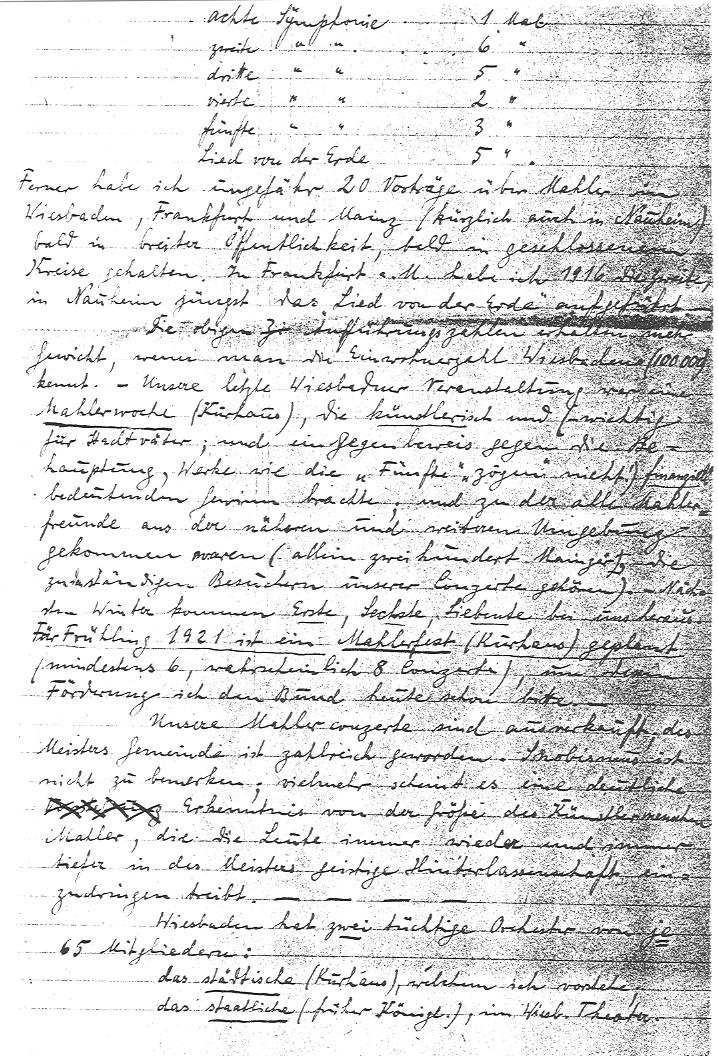 achte Symphonie 1 Mal
zweite " " 6 "
dritte " " 5 "
vierte " " 2 "
fünfte " " 3 "
Lied von der Erde 5 " .
Ferner habe ich ungefähr 20 Vorträge über Mahler in
Wiesbaden, Frankfurt und Mainz (kürzlich auch in Nauheim)
bald in breiter Öffentlichkeit, bald in geschlossenem
Kreise gehalten. In Frankfurt a. M. habe ich 1916 die zweite,
in Nauheim jüngst das "Lied von der Erde" aufgeführt
Die obigen Aufführungszahlen erhalten mehr
Gewicht, wenn man die Einwohnerzahl Wiesbadens (100 000)
kennt. – Unsere letzte Wiesbadner Veranstaltung war eine
Mahlerwoche (Kurhaus), die künstlerisch und (wichtig
für Stadtväter; und ein Gegenbeweis gegen die Be-
hauptung, Werke wie die „Fünfte" „zögen" nicht!) finanziell
bedeutenden Gewinn brachte; und zu der alle Mahler-
freunde aus der näheren und weiteren Umgebung
gekommen waren (allein zweihundert Mainzer, die
zu ständigen Besuchern unserer Conzerte gehören). – Näch-
sten Winter kommen Erste, Sechste, Siebente bei uns heraus.
Für Frühling 1921 ist ein Mahlerfest (Kurhaus) geplant
(mindestens 6, wahrscheinlich 8 Conzerte), um deren
Förderung ich den Bund heute schon bitte. –
Unsere Mahlerconzerte sind ausverkauft, des
Meisters Gemeinde ist zahlreich geworden. Snobismus ist
nicht zu bemerken; vielmehr scheint es eine deutliche
Erkenntnis von der Größe des Künstlermenschen
Mahler, die die Leute immer wieder und immer
tiefer in des Meisters geistige Hinterlassenschaft ein-
zudringen treibt. — — — —
Wiesbaden hat zwei tüchtige Orchester von je
65 Mitgliedern:
das städtische (Kurhaus), welchem ich vorstehe,
das staatliche (früher Königl.), im Wiesb. Theater.